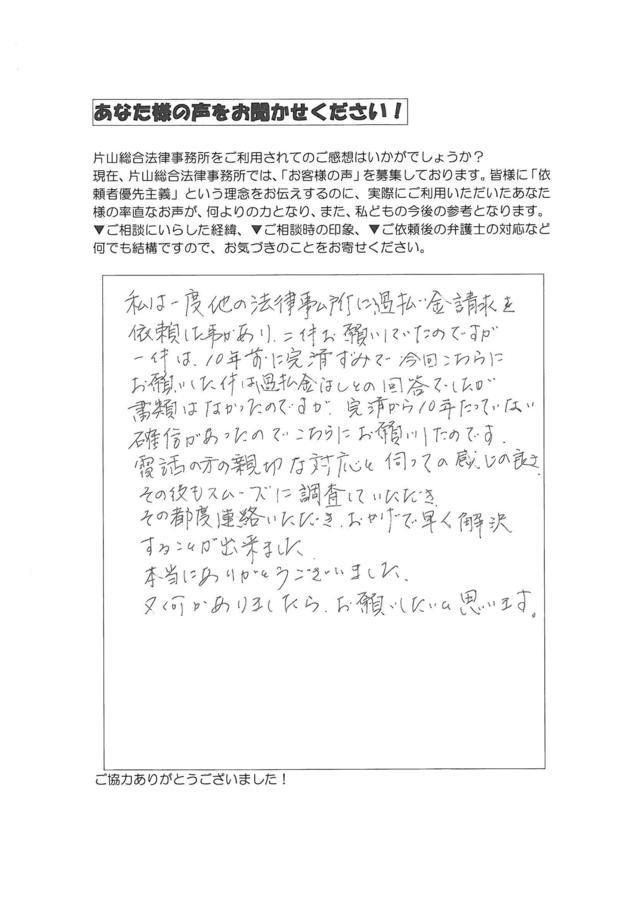 あなた様の声をお聞かせください！
片山総合法律事務所をご利用されてのご感想はいかがでしょうか？
現在、片山総合法律事務所では、「お客様の声」を募集しております。皆様に「依
頼者優先主義」という理念をお伝えするのに、実際にご利用いただいたあなた
様の率直なお声が、何よりの力となり、また、私どもの今後の参考となります。
▼ご相談にいらした経緯、▼ご相談時の印象、▼ご依頼後の弁護士の対応など
何でも結構ですので、お気づきのことをお寄せください。
私は一度他の法律事ム所に過払い金請求を
依頼した事があり、二件お願いしていたのですが
一件は、10年前に完済ずみで 今回こちらに
お願いした件は過払金なしとの回答でしたが
書類はなかったのですが、完済から10年たっていない
確信があったのでこちらにお願いしたのです。
電話の方の親切な対応と 伺っての感じの良さ、
その後もスムーズに調査していただき
その都度連絡いただき、おかげで早く解決
することが出来ました。
本当にありがとうございました。
又何かありましたら、お願いしたいと思います。
ご協力ありがとうございました！